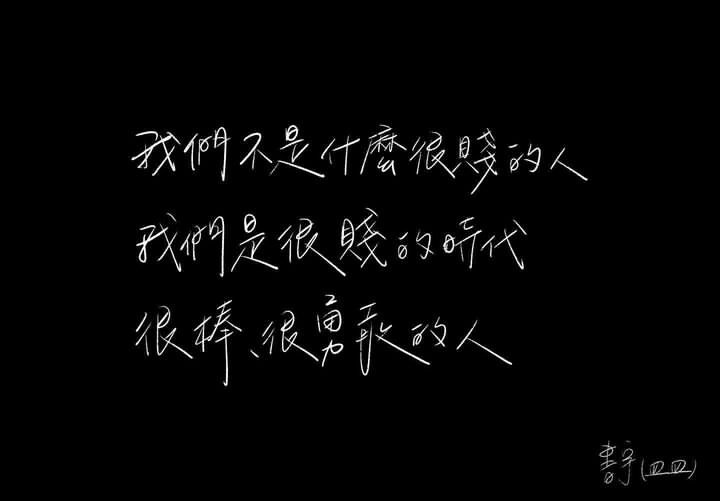 我們不是什麼很賤的人
我們是很賤的時代
很棒、很勇敢的人
(四四)